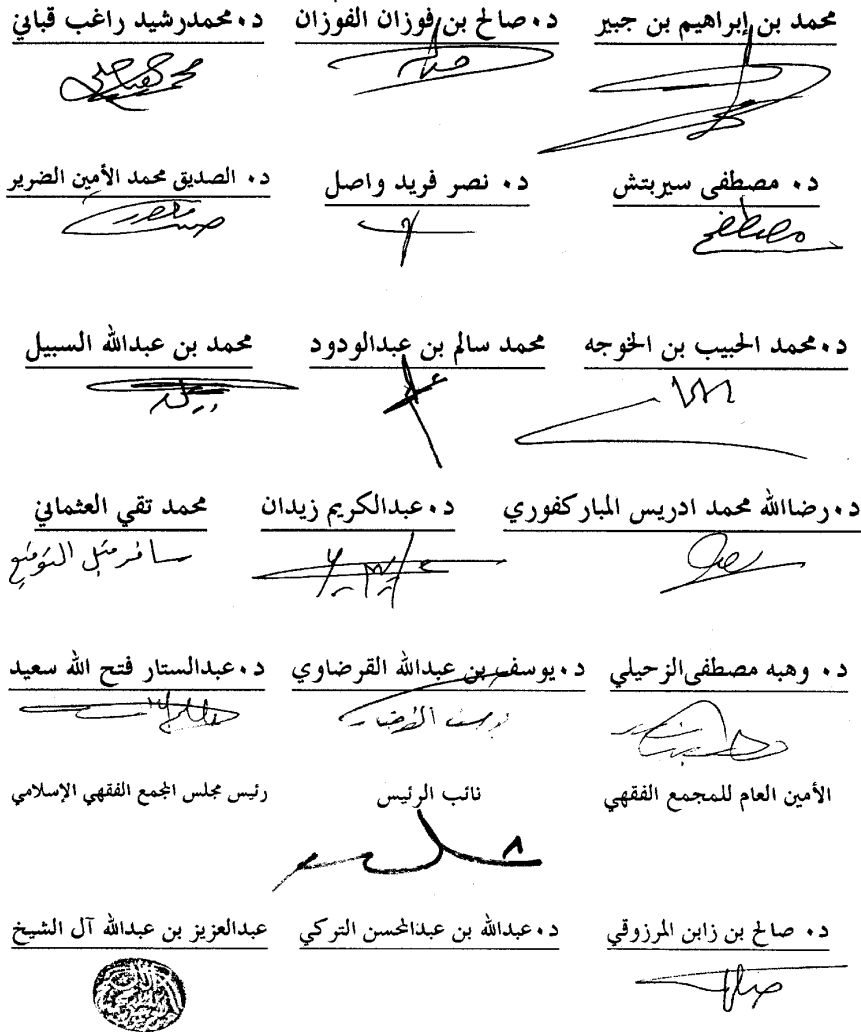 محمد بن إبراهيم بن جبير د٠صالح بن فوزان الفوزان د٠محمدرشيد راغب قباني
د٠ مصطفى سيربتش د٠ نصر فريد واصل د٠ الصديق محمد الأمين الضرير
مصطفى
د٠محمد الحبيب بن الخوجه محمد سالم بن عبدالودود محمد بن عبدالله السبيل
د٠رضاالله محمد ادريس المباركفوري د٠عبدالكريم زيدان محمد تقي العثماني
سافر قبل التوقيع
د٠ وهبه مصطفى الزحيلي د٠يوسف بن عبدالله القرضاوي د٠عبدالستار فتح الله سعيد
يوسف القرضاوي
الأمين العام للمجمع الفقهي نائب الرئيس رئيس مجلس المجمع الفقهي الإسلامي
د٠ صالح بن زابن المرزوقي د٠عبدالله بن عبدالمحسن التركي عبدالعزيز بن عبدالله آل الشيخ